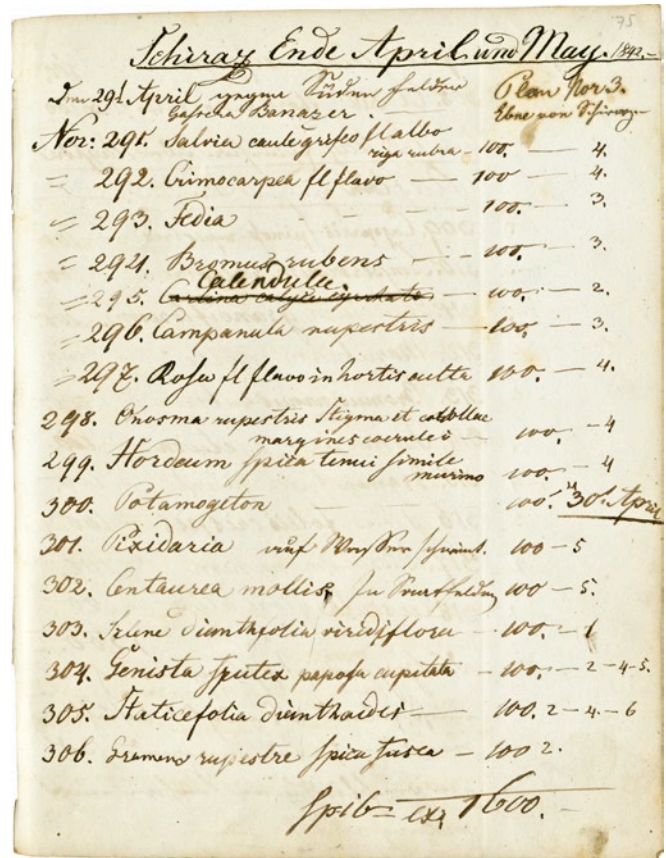 75
Schiraz Ende April und May. 1842.-
Den 29t April gegne Süden Felder Plan Nor 3.
Banazer. - Ebne von Schiraz-
Nor: 291. Salvia caule griseo fl albo
riga rubra - 100. - 4.
= 292. Crimocarpea fl flavo - 100 - 4.
= 293. Fedia - - - - 100. - 3.
= 294. Bromus rubens - 100. - 3.
Calendula.
= 295. Carlina calyce - 100. - 2.
= 296. Campanula rupestris - 100. - 3.
= 297. Rosa fl flavo in hortis culta 100. - 4.
298. Onosma rupestris Stigma et corollae
margines coerulei - 100. - 4
299. Hordeum spica tenui simile
murino 100. - 4
300. Potamogeton 100. 30t April
301. Pixidaria auf Wasser schwimt. 100 - 5
302. Centaurea mollis. In 100 - 5.
303. Silene dianthfolia viridiflora - 100. - 1
304. Genista frutex paposa capitata - 100. - 2 - 4 - 5.
305. Staticefolia dianthoides - 100. 2 - 4 - 6
306. Gramen rupestre spica fusca - 100 2.
Spib= ex. 1600. -